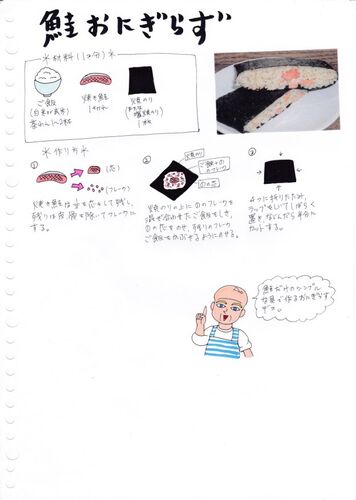 鮭おにぎらず
*材料(1コ分)*
ご飯
(白米or玄米)
茶わん1〜2杯
焼き鮭
1切れ
焼のり
1枚
*作り方*
①
(芯)
(フレーク)
焼き鮭は
を芯として残し、
残りは皮、骨を除いてフレークに
する。
②
焼のり
ご飯+①
のフレーク
①の芯
焼のりの上に①のフレークを
混ぜ合わせたご飯をしき、
①の芯をのせ、残りのフレーク
ご飯をかぶせるようにのせる。
③
4つに折りたたみ、
ラップをして、しばらく
置き、なじんだら半分に
カットする。
鮭だけのシンプル
な具で作るおにぎらず
デス。